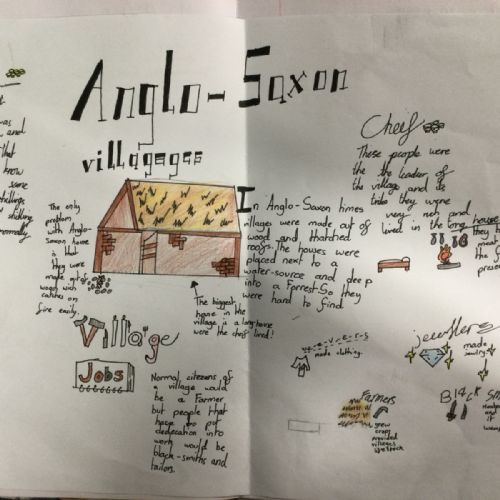 Anglo-Saxon
villageges
was
and
that
know
same
normally
The only
problem
with Anglo-
Saxon home
is that
they were
made out of
wood wich
catches on
fire easily.
In Anglo-Saxon times
villages were made out of
wood and thatched
roofs. The houses were
placed next to a
water-source and deep
into a Forrest So they
were hard to find
The biggest
home in the
village is a long-home
were the cheif lived!
Cheif
These people were
the the leader of
the village and a
tribe they were
very rich and
lived in the long house
they h
the f
prese
Village
Jobs
Normal citizens of
a village would
be a Farmer
but people that
have to put
dedecation into
work would be
black-smiths and
tailors.
w-e-v-e-r-s
made clothing.
jewellers
made
Farmers
grew
crops
provided
villages
Blac
Sm